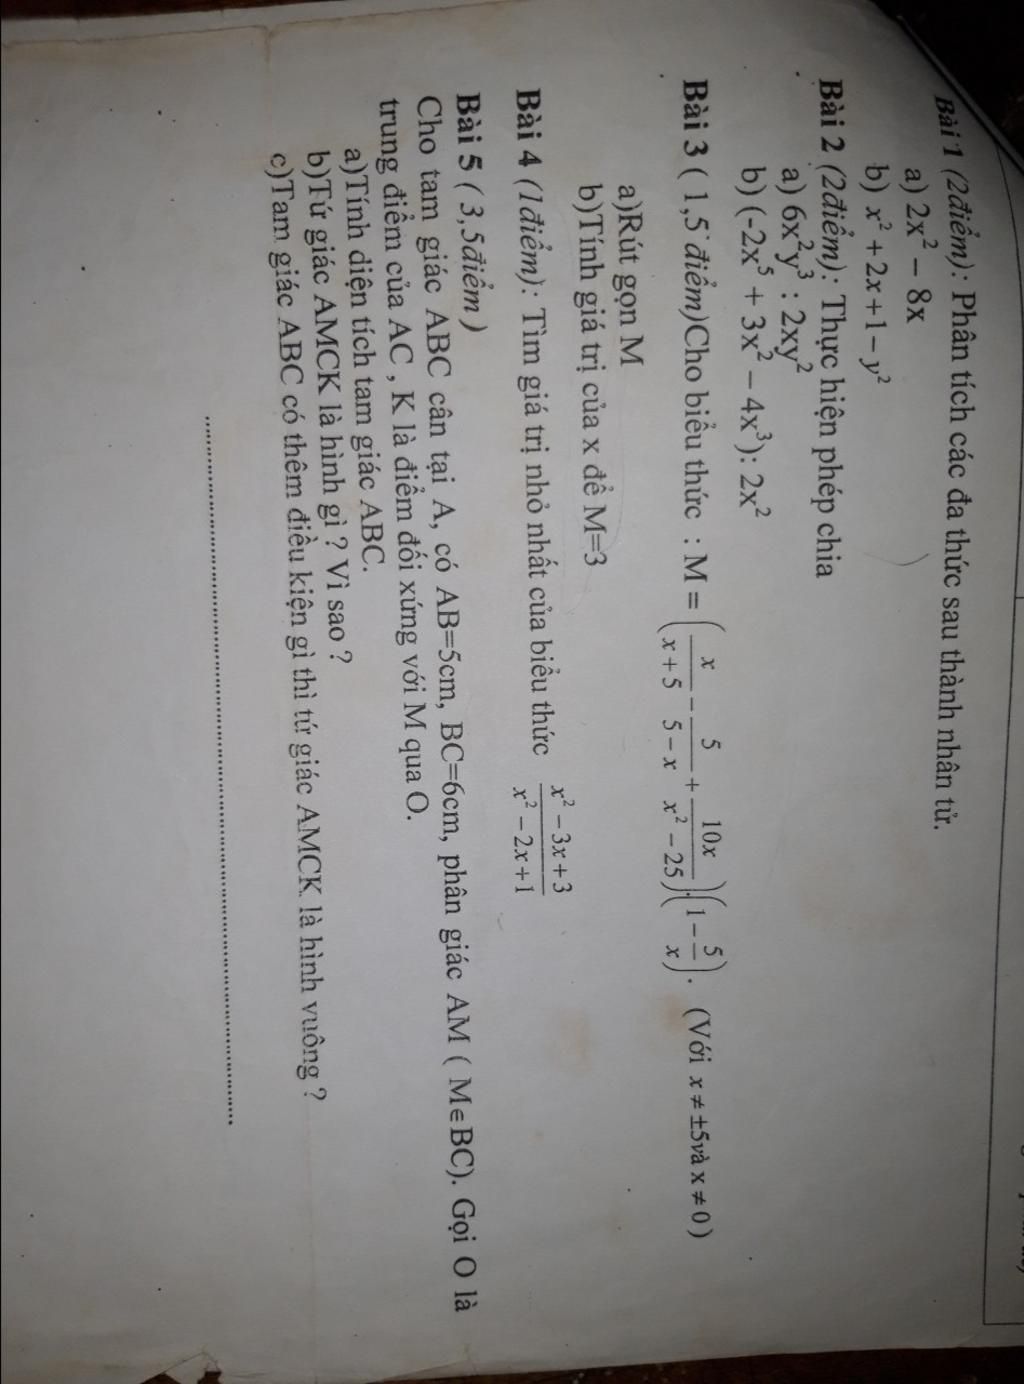 Bài 1 (2điểm): Phân tích các đa thức sau thành nhân tử.
a) 2x² – 8x
b) x² + 2x + 1 – y²
Bài 2 (2điểm): Thực hiện phép chia
a) 6x²y³ : 2xy²
b) (-2x⁵ + 3x² – 4x³): 2x²
Bài 3 ( 1,5 điểm)Cho biểu thức : M = (x/(x+5) – 5/(5–x) + 10x/(x²–25)).(1 – 5/x). (Với x ≠ ±5và x ≠ 0)
a)Rút gọn M
b)Tính giá trị của x để M=3
Bài 4 (1điểm): Tìm giá trị nhỏ nhất của biểu thức (x² – 3x + 3)/(x² – 2x + 1)
Bài 5 ( 3,5điểm )
Cho tam giác ABC cân tại A, có AB=5cm, BC=6cm, phân giác AM ( M∈BC). Gọi O là
trung điểm của AC , K là điểm đối xứng với M qua O.
a)Tính diện tích tam giác ABC.
b)Tứ giác AMCK là hình gì ? Vì sao ?
c)Tam giác ABC có thêm điều kiện gì thì tứ giác AMCK là hình vuông ?